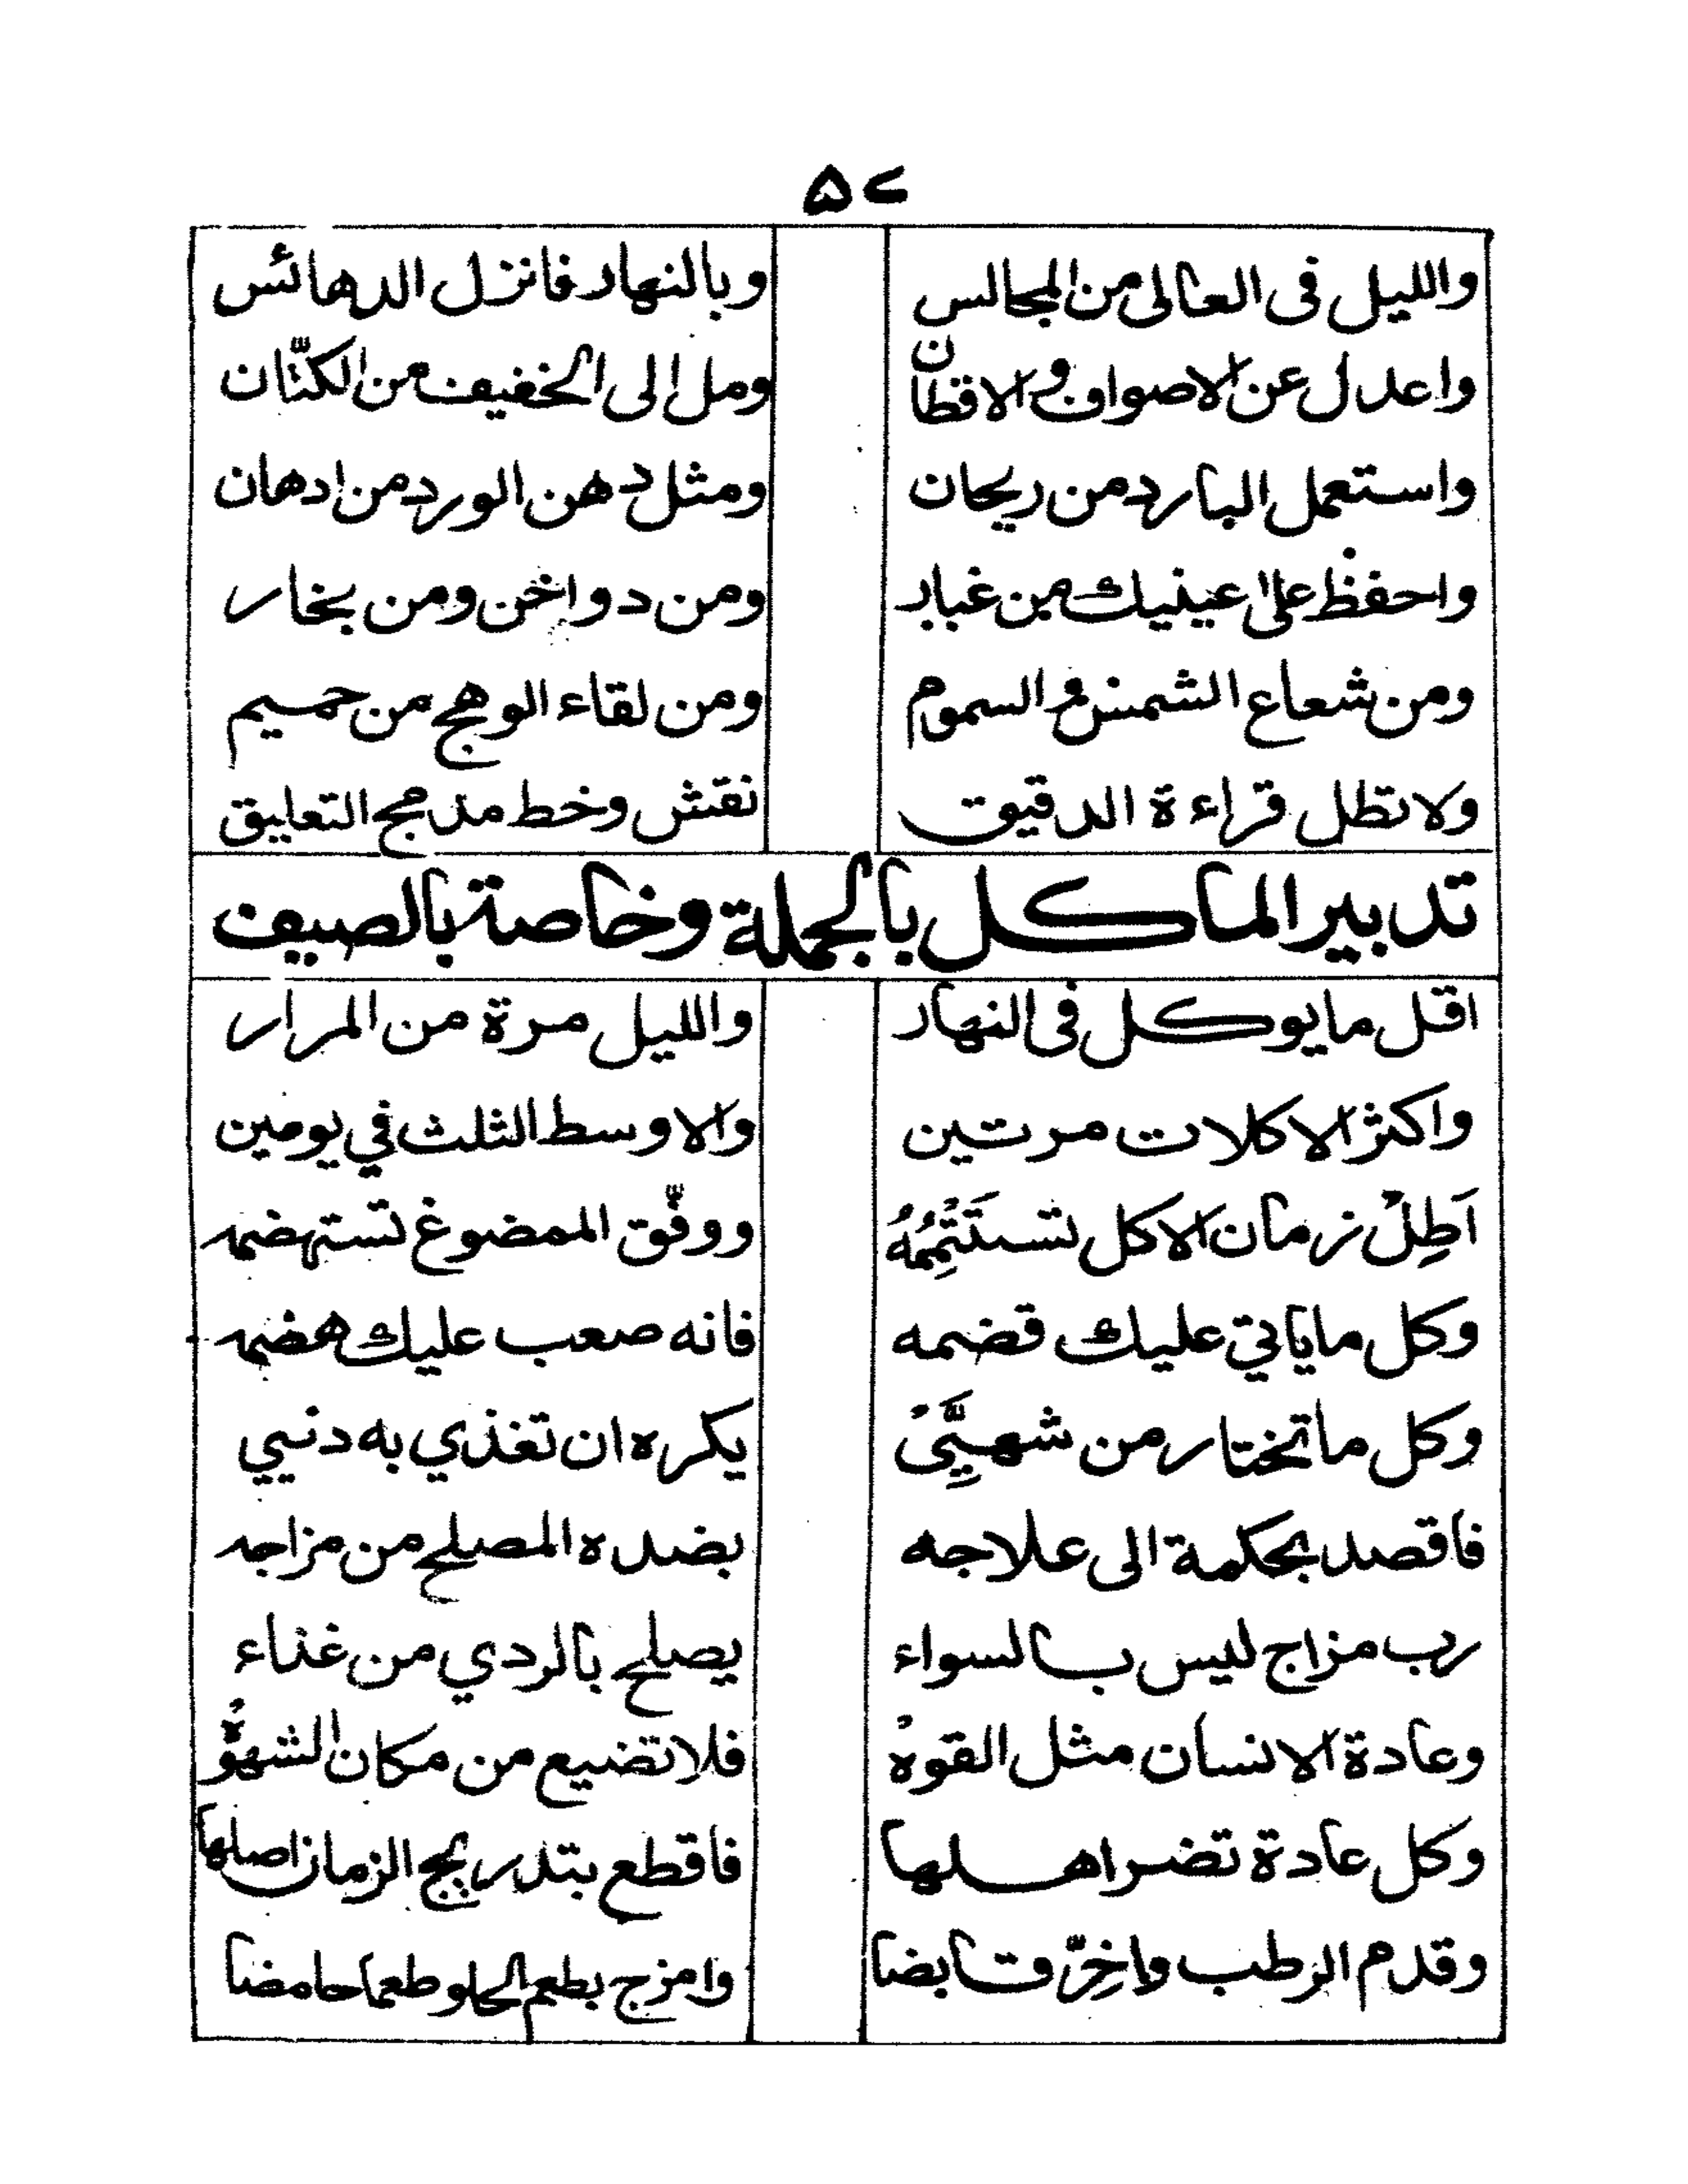 ۵۷
والليل فى العالى من المجالس وبالنهار فانزل الدهائس
واعدل عن الاصواف والاقطان ومل الى الخفيف من الكتّان
واستعمل البارد من ريحان ومثل دهن الورد من ادهان
واحفظ على عينيك من غبار ومن دواخن ومن بخار
ومن شعاع الشمس والسموم ومن لقاء الوهج من حميم
ولا تطل قراءة الدقيق نقش وخط مدمج التعليق
تدبير الماكل بالجملة وخاصة بالصيف
اقل ما يوكل فى النهار والليل مرة من المرار
واكثر الاكلات مرتين والاوسط الثلث في يومين
اَطِلْ زمان الاكل تستَتْمِمُهُ ووفّق الممضوغ تستهضمه
وكل ما ياتي عليك قضمه فانه صعب عليك هضمه
وكل ما تختار من شهيَّىْ يكره ان تغذي به دنيي
فاقصد بحكمة الى علاجه بضده المصلح من مزاجه
رب مزاج ليس بالسواء يصلح بالردي من غذاء
وعادة الانسان مثل القوهْ فلا تضيع من مكان الشهوُهْ
وكل عادة تضر اهلها فاقطع بتدريج الزمان اصلها
وقدم الرطب واخِرّ قابضا وامزج بطعم الحلو طعما حامضا